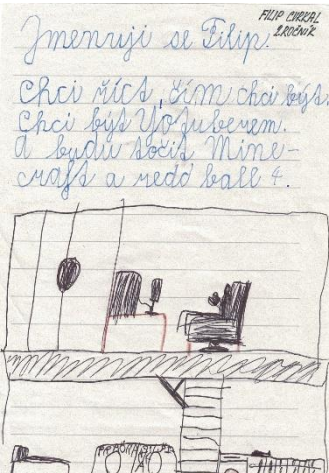 FILIP CVRKAL
2.ROČNÍK
Jmenuji se Filip.
Chci říct, čím chci být.
Chci být Yotuberem.
A budu točit Mine-
craft a redd ball 4.